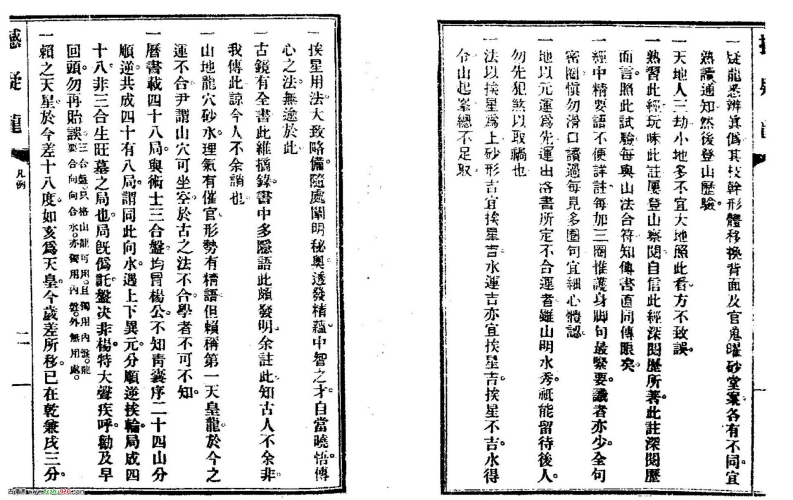 一疑龍悉辨真僞其枝幹形體移換背面及官鬼曜砂堂案各有不同宜
熟讀通知然後登山歷驗
一天地人三劫小地多不宜大地照此看方不致誤
一熟習此經玩味此註屢登山察閱自信此經深閱歷所著此註深閱歷
而言照此試驗每與山法合符知傳書直同傳眼矣
一經中精要語不便詳註每加三圈惟護身脚句最緊要識者亦少全句
密圈慎勿滑口讀過每見多圈句宜細心體認
一地以元運爲先運出洛書所定不合運者雖山明水秀祇能留待後人
勿先犯煞以取禍也
一法以挨星爲上砂形吉宜挨星吉水運吉亦宜挨星吉挨星不吉水得
令山起案總不足取
一挨星用法大致略備隨處闡明秘奧透發精蘊中智之才自當曉悟傳
心之法無逾於此
一古鏡有全書此維摘錄書中多隱語此頗發明余註此知古人不余非
我傳此諒今人不余誚也
一山地龍穴砂水理氣有催官形勢有精語但賴稱第一天皇龍於今之
運不合尹謂山穴可坐空於古之法不合學者不可不知
一曆書載四十八局與術士三合盤均冒楊公不知青囊序二十四山分
順逆共成四十有八局謂同此向水遇上下異元分順逆挨輪局成四
十八非三合生旺墓之局也局旣僞託盤決非楊特大聲疾呼勸及早
回頭勿再貽誤三合盤只格山龍可用且獨用內盤龍
要合向向合水亦獨用內盤外無用處
一賴之天星於今差十八度如亥爲天皇今歲差所移已在乾兼戌三分
撼疑龍
凡例